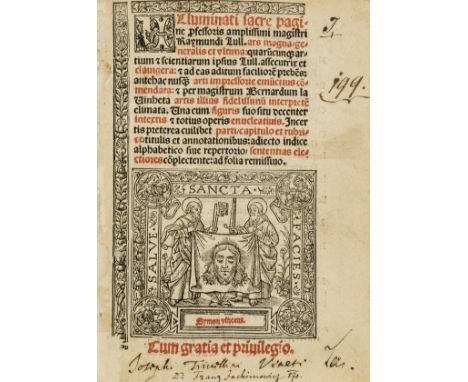 Illuminati sacre pagi-
ne p̄fessoris amplissimi magistri
Raymundi Lull. ars magna: ge-
neralis et vltima: quarūcunq̃ ar-
tium ⁊ scientiarum ipsius Lull. assecutrix et
clauigera: ⁊ ad eas aditum faciliorē p̄bēs:
antehac nusq̃ arti impressorie emūctius cō-
mendata: ⁊ per magistrum Bernardum la
Vinheta artis illius fidelissimū interpretē
elimata. Una cum figuris suo situ decenter
intextis ⁊ totius operis enucleatiuis. Incer-
tis preterea cuilibet parti: capitulo et rubri-
co: titulis et annotationibus: adiecto indice
alphabetico siue repertorio: sententias ele-
ctiores cōplectente: ad folia remissiuo.
199.
SALVE
SANCTA
FACIES
Symon vincent.
Cum gratia et priuilegio.
Josephi
D: Franz